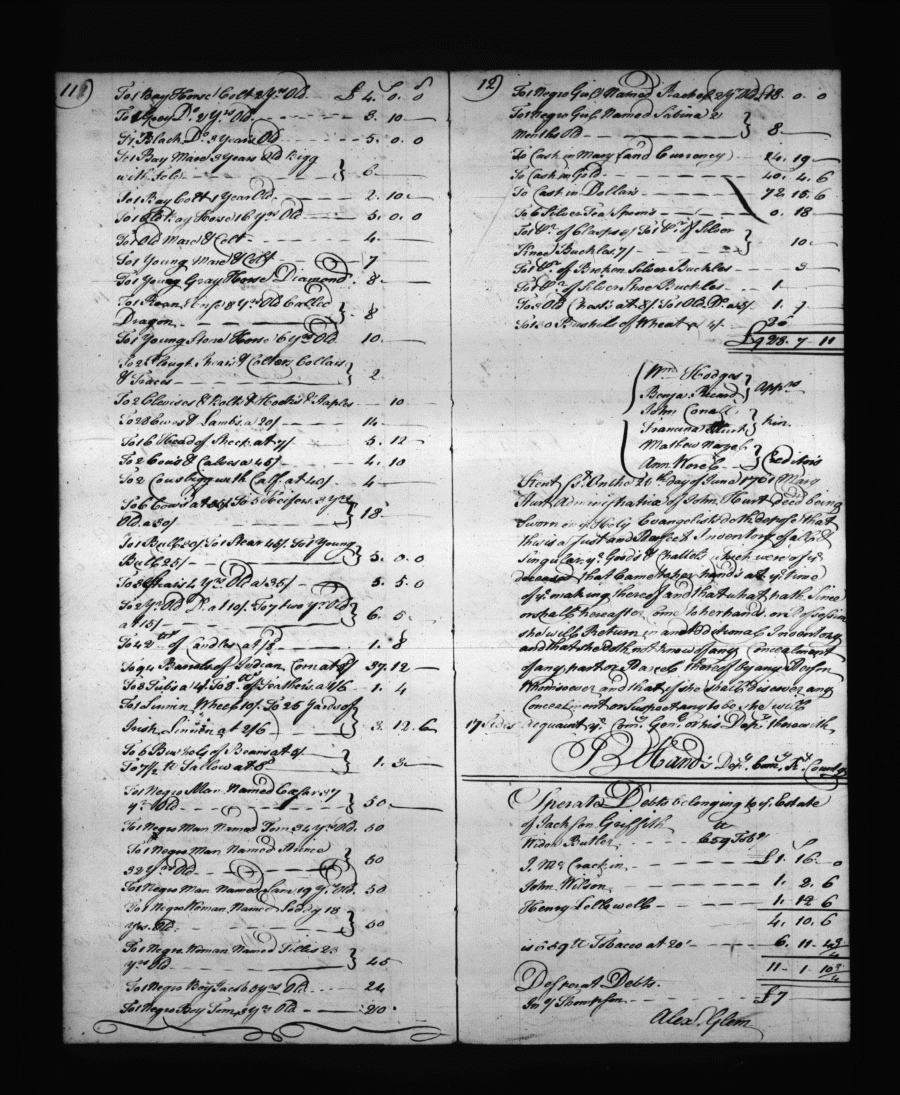 11
To 1 Bay Horse Colt 2 Yrs Old £ 4. 0. 0
To 1 Grey Do. 2 Yrs Old 3. 10
To 1 Black Do. 3 Years Old 5. 0. 0
To 1 Bay Mare 3 Years Old Bigg
with fole 6
To 1 Bay Colt 1 Year Old 2. 10
To 1 Old Bay Horse 16 Yrs Old 5. 0. 0
To 1 Old Mare & Colt 4
To 1 Young Mare & Colt 7
To 1 Young Gray Horse Diamond 8
To 1 Roan Horse 8 Yrs Old Called
Dragon 8
To 1 Young Horse 6 Yrs Old 10
To 2 Plough Shears & Colters Collars
& Traces 2
To 2 Clevises & Bolts & Hooks & Staples 10
To 28 Ewes & Lambs a 10/ 14
To 16 Head of Sheep at 7/ 5. 12
To 2 Cows & Calves a 45/ 4. 10
To 2 Cows bigg with Calf at 40/ 4
To 6 Cows at 35/ To 5 Heifers 3 Yrs
Old a 30/ 18
To 1 Bull 30/ To 1 Stear 45/ To 1 Young
Bull 25/ 5. 0. 0
To 3 Stears 4 Yrs Old a 35/ 5. 5. 0
To 2 Yrs Old Do. at 10/ To 7 two Yrs Old
at 15/ 6. 5
To 42 lb of Candles at /8 1. 8
To 94 Barrels of Indian Corn at 8/ 37. 12
To 8 Tubs a 1/ To 8 lb of Feathers a 1/6 1. 4
To 1 Linnen Wheel 10/ To 25 Yards of
Irish Linnen at 2/6 3. 12. 6
To 6 Bushels of Beans at 3/
To 7 1/2 lb Tallow at 8d 1. 3
To 1 Negro Man Named Casar 37
yrs Old 50
To 1 Negro Man Named Tom 34 yrs Old 50
To 1 Negro Man Named Prince
32 yrs Old 50
To 1 Negro Man Named Sam 19 yrs Old 50
To 1 Negro Woman Named 18
yrs Old 50
To 1 Negro Woman Named Fillis 23
yrs Old 45
To 1 Negro Boy Jacob 5 yrs Old 24
To 1 Negro Boy Tom 3 yrs Old 20
12
To 1 Negro Girl Named Rachel 2 yrs Old £18. 0. 0
To 1 Negro Girl Named Sabina 2
Months Old 8
To Cash in Maryland Currency 24. 19
To Cash in Gold 40. 4. 6
To Cash in Dollars 72. 15. 6
To 6 Silver Tea Spoons 0. 18
To 1 Pr. of Clasps 8/ To 1 Pr. of Silver
Knee Buckles 7/ 10
To 1 Pr. of Broken Silver Buckles 3
To 1 Pr. of Silver Shoe Buckles 1
To 2 Old Chests at 8/ To 1 Old Do. a 5/ 1. 1
To 130 Bushels of Wheat a 4/
£928. 7. 11
Wm Hodges
Benja. Ricaud Apprs
John Conall
Francina Hurt Kin
Mathew
Ann Creditors
Kent Ss. On the 20th day of June 1761 Mary
Hurt Administratrix of John Hurt deced being
Sworn on ye Holy Evangelists doth depose that
this is a Just and Perfect Inventory of all &
Singular ye Goods & Chattels which were of ye
deceased that Came to her hands at ye time
of ye making thereof and that what hath Since
or shall hereafter Come to her hands or Possession
she will Return in and Additional Inventory
and that she doth not know of any Concealment
of any part or Parcel thereof by any Person
Whomsoever and that if she shall discover any
Concealment or suspect any to be she will
17 Sides Acquaint ye Comy Genl or his Depy therewith
Hands Depy Comy Kt County
Sperate Debts belonging to ye Estate
of Jackson Griffith
Widow Butler 659 Tobo
J. McCrackin £1. 16. 0
John Wilson 1. 2. 6
Henry Tellewell 1. 12. 6
4. 10. 6
is 659 lb Tobacco at 20/ 6. 11. 4 3/4
11. 1. 10 3/4
Desperat Debts
Thompson £7
Alexr. Glenn